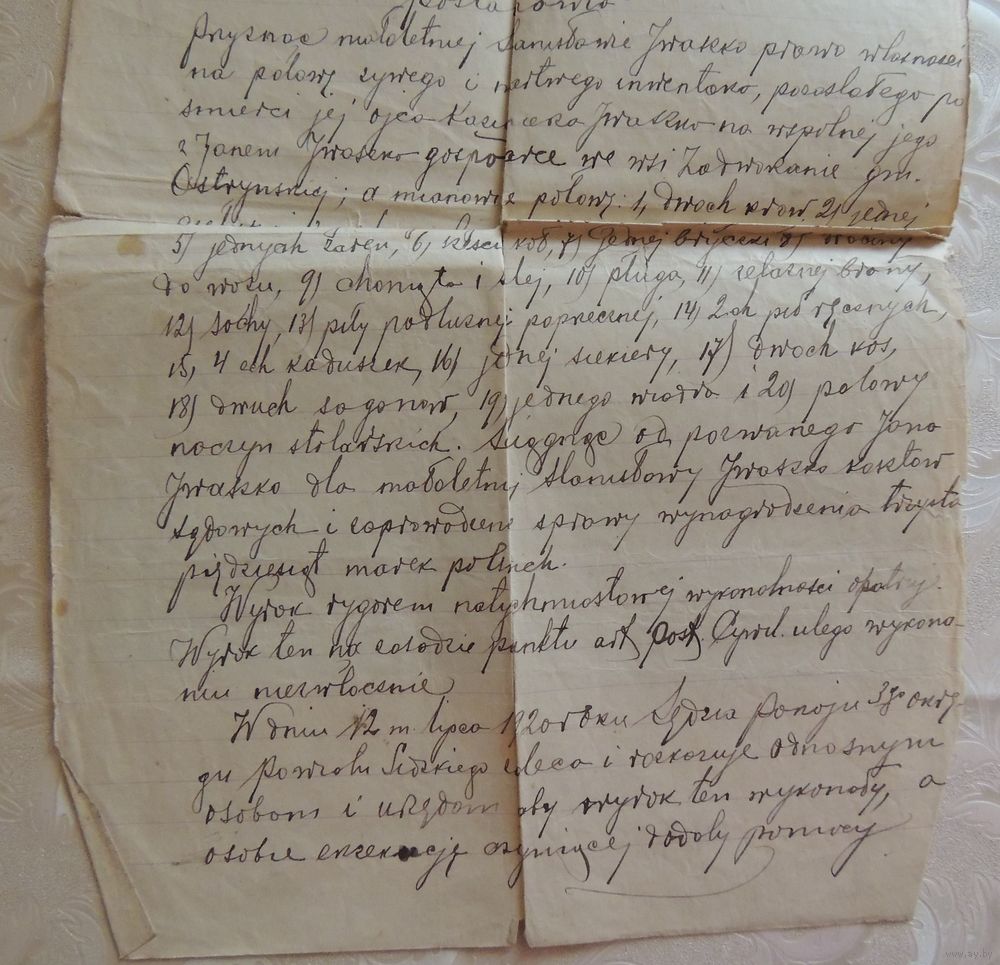 postanowił
Przyznać małoletniej Stanisławie Jwaszko prawo własności
na połowę żywego i martwego inwentarza, pozostałego po
śmierci jej ojca Kazimierza Jwaszko na wspólnej jego
z Janem Jwaszko gospodarce we wsi Zadworzanie gm.
Ostryńskiej; a mianowicie połowę: 1, dwoch krow, 2) jednej
5) jednych żaren, 6) sześci kół, 7) jednej bryczki 8)
do wozu, 9) chomąta i slej, 10) pługa, 11) żelaznej brony,
12) sochy, 13) piły podłużnej poprzecznej, 14) 2ch pił ręcznych,
15, 4 ech kaduszek, 16) jednej siekiery, 17) dwoch kos,
18) dwuch saganow, 19) jednego wiadra i 20) połowy
naczyn stolarskich. Siągnąć od pozwanego Jana
Jwaszko dla małoletniej Stanisławy Jwaszko kosztow
sądowych i zaprowadzenie sprawy wynagrodzenia trzysta
pięćdziesiąt marek polskich.
Wyrok rygorem natychmiastowej wykonalności opatrzyć.
Wyrok ten na zasadzie punktu art post. Cywil. ulega wykona-
niu niezwłocznie
W dniu 12 m. lipca 1920 roku Sędzia Pokoju 37go okrę-
gu Powiatu Lidzkiego zaleca i rozkazuje odnosnym
osobom i urzędom aby wyrok ten wykonały, a
osobie egzekucję czyniącej dodały pomocy
www.ay.by